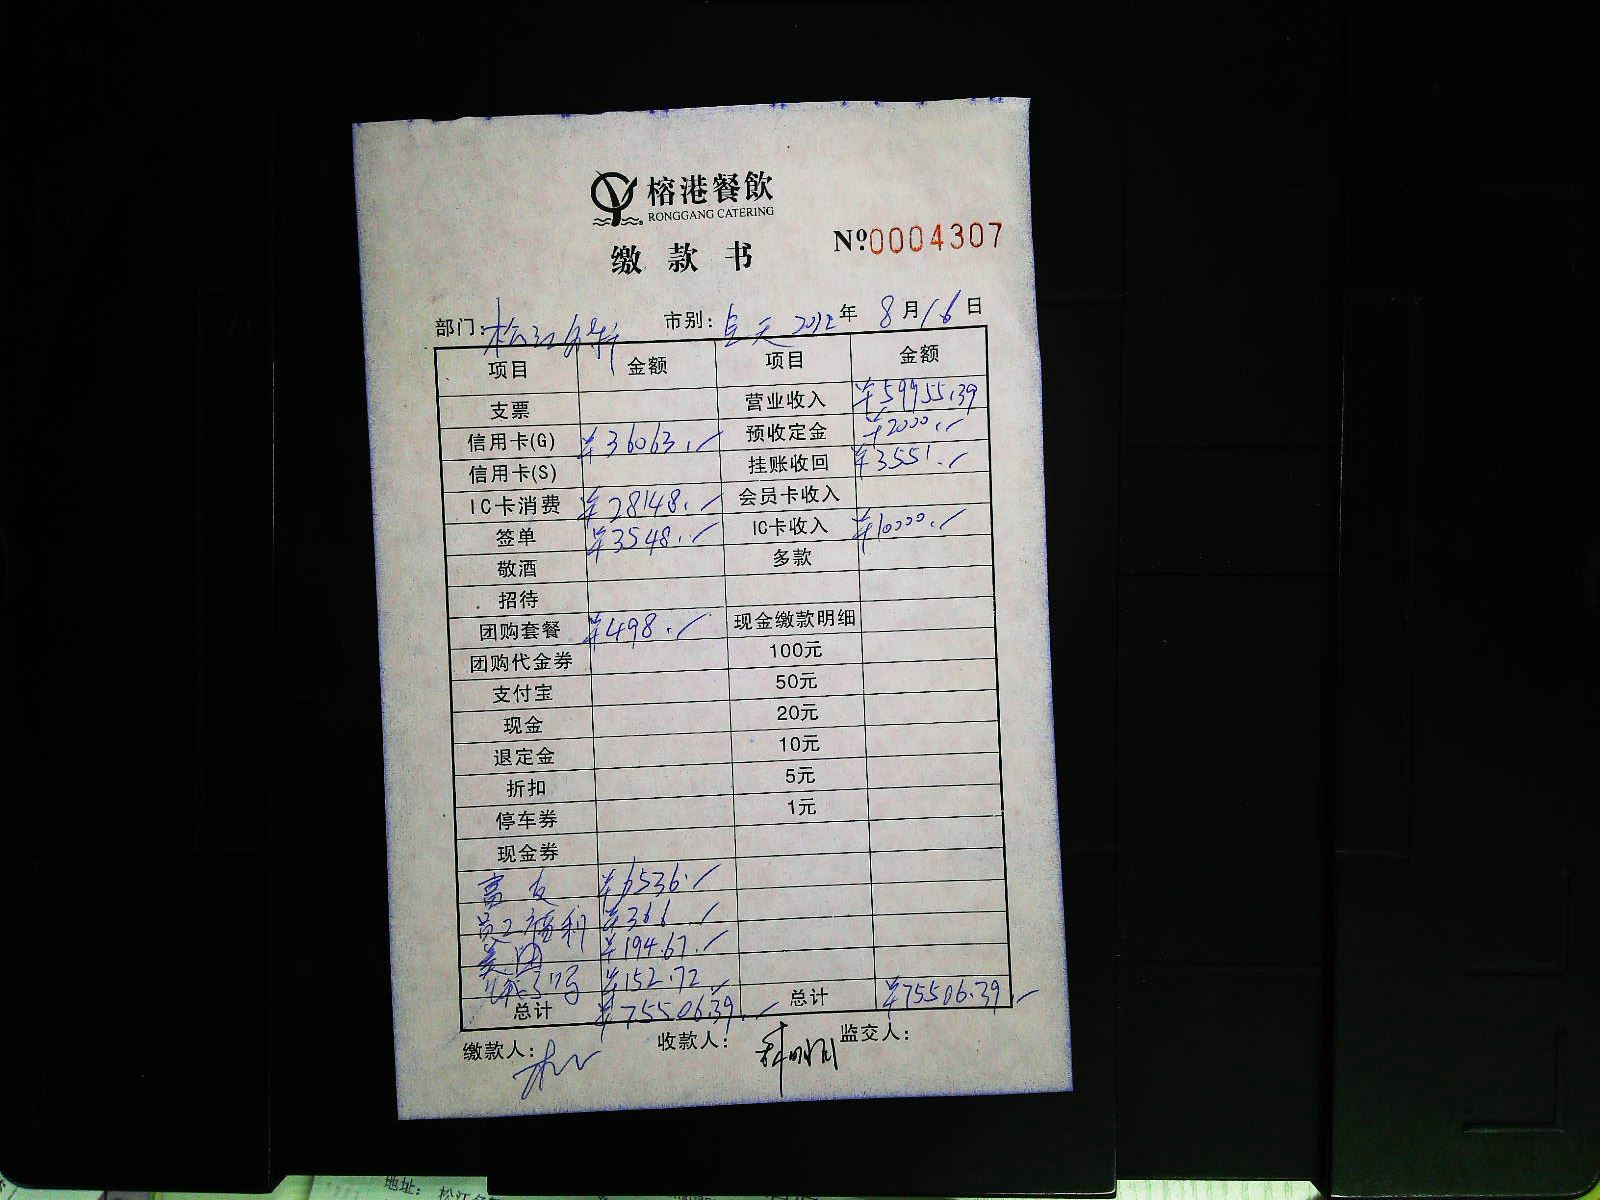 榕港餐飲
RONGGANG CATERING
缴款书 №0004307
部门: 松江名轩 市别: 全天 2012年 8月16日
项目 金额 项目 金额
支票 营业收入 ¥59955.39
信用卡(G) ¥36063.- 预收定金 ¥2000.-
信用卡(S) 挂账收回 ¥3551.-
IC卡消费 ¥28148.- 会员卡收入
签单 ¥3548.- IC卡收入 ¥10000.-
敬酒 多款
招待
团购套餐 ¥498.- 现金缴款明细
团购代金券 100元
支付宝 50元
现金 20元
退定金 10元
折扣 5元
停车券 1元
现金券
¥6536.-
员工福利 ¥366.-
美团 ¥194.67.-
¥152.72
总计 ¥75506.39.- 总计 ¥75506.39.-
缴款人: 收款人: 监交人:
地址: 松江名